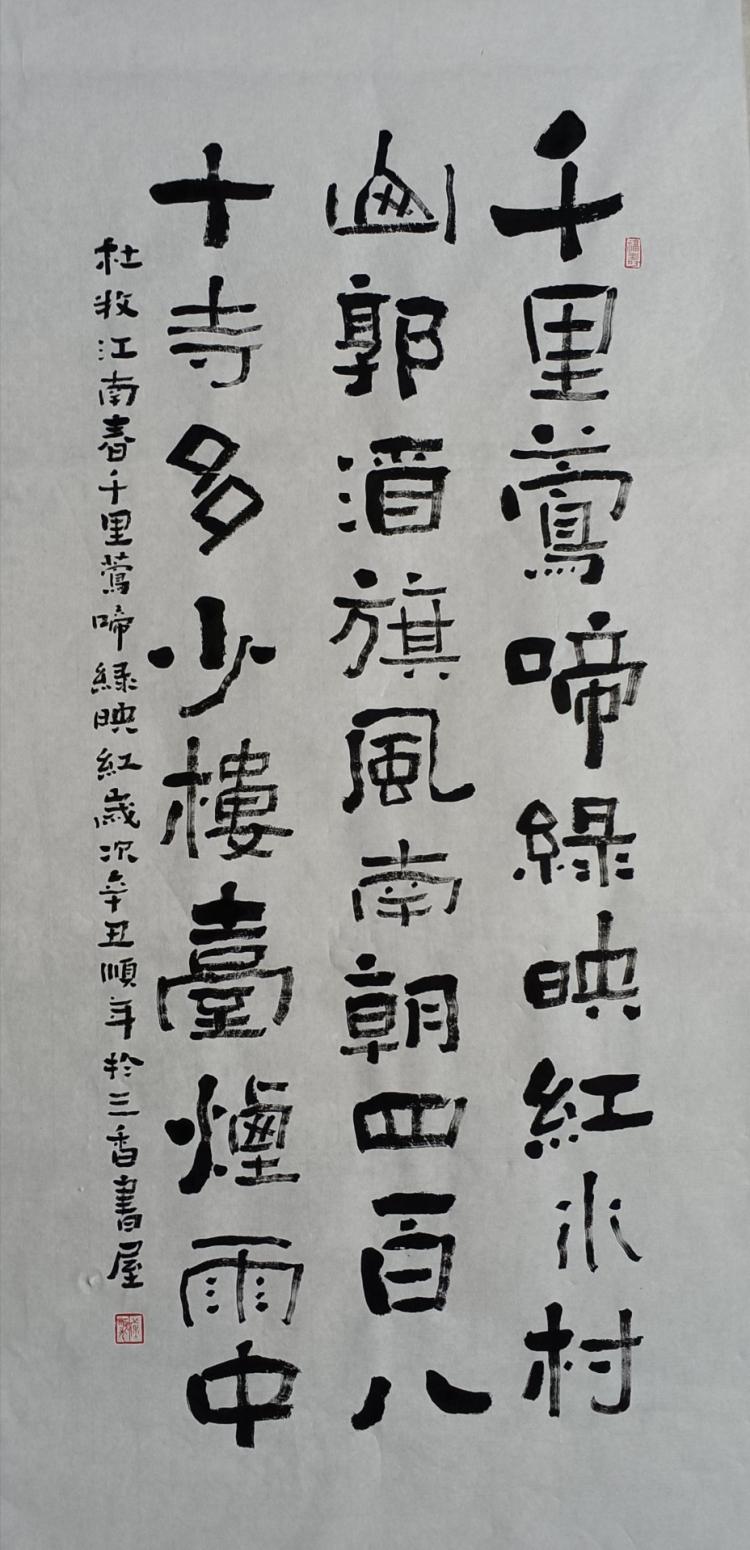 千里鶯啼綠映紅水村
山郭酒旗風南朝四百八
十寺多少樓臺煙雨中
杜牧江南春千里鶯啼緑映紅歲次辛丑順年於三香書屋